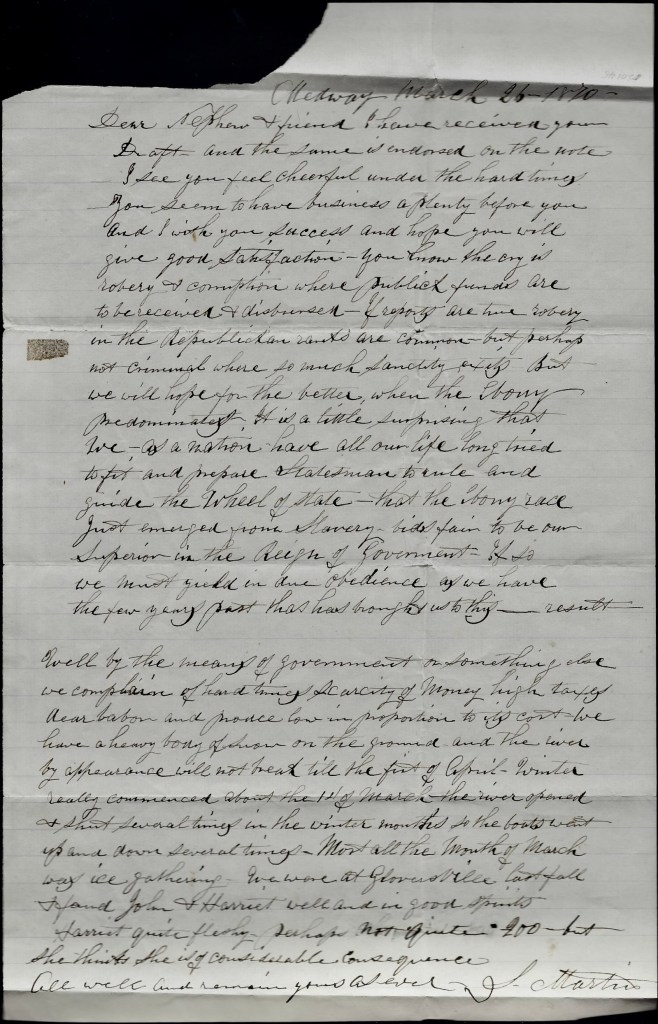 Medway March 26 - 1870 -
Dear Nephew & friend I have received your
Draft - and the same is endorsed on the note
I see you feel cheerful under the hard times
You seem to have business a plenty before you
and I wish you success and hope you will
give good satisfaction - You know the cry is
robery & corruption where publick funds are
to be received & disbursed - If reports are true robery
in the Republickan ranks are common - but perhap
not criminal where so much sanctity exits But
we will hope for the better, when the Ebony
predominates. It is a little surprising that
We - as a nation have all our life long tried
to fit and prepare Statesman to rule and
guide the Wheel of state - that the Ebony race
Just emerged from Slavery - bids fair to be our
Superior in the Reign of Goverment - If so
we must yield in due obedience as we have
the few years past that has brought us to this - result -
Well by the means of government or something else
we complain of hard times scarcity of Money high taxes
dear labor and produce low in proportion to its cost - We
have a heavy body of snow on the ground and the river
by appearance will not break till the first of April - Winter
really commenced about the 1st of March the river opened
& shut several times in the winter months so the boats went
up and down several times - Most all the Month of March
was ice gathering - We were at Gloversville last fall
& found John & Harriet well and in good spirits
Harriet quite fleshy perhaps not quite 200 - but
she thinks she is of considerable consequence
All well and remain yours as ever - S. Martin